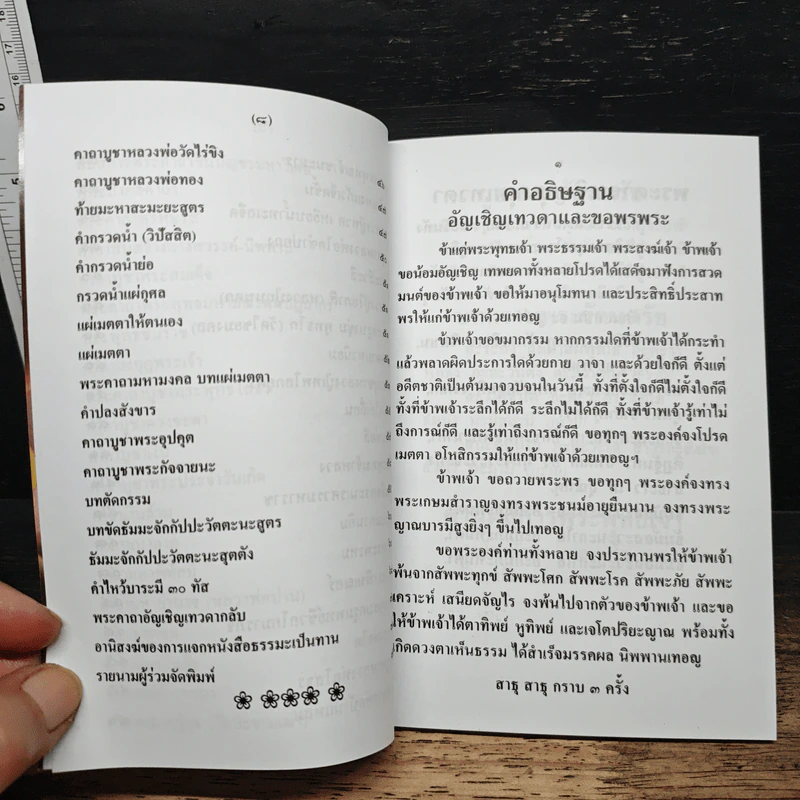 (๘)
คาถาบูชาหลวงพ่อวัดไร่ขิง
คาถาบูชาหลวงพ่อทอง
ท้ายมะหาสะมะยะสูตร
คำกรวดน้ำ (วิปัสสิต)
คำกรวดน้ำย่อ
กรวดน้ำแผ่กุศล
แผ่เมตตาให้ตนเอง
แผ่เมตตา
พระคาถามหามงคล บทแผ่เมตตา
คำปลงสังขาร
คาถาบูชาพระอุปคุต
คาถาบูชาพระกัจจายนะ
บทตัดกรรม
บทขัดธัมมะจักกัปปะวัตตะนะสูตร
ธัมมะจักกัปปะวัตตะนะสุตตัง
คำไหว้บาระมี ๓๐ ทัส
พระคาถาอัญเชิญเทวดากลับ
อานิสงฆ์ของการแจกหนังสือธรรมะเป็นทาน
รายนามผู้ร่วมจัดพิมพ์
๑
คำอธิษฐาน
อัญเชิญเทวดาและขอพรพระ
ข้าแต่พระพุทธเจ้า พระธรรมเจ้า พระสงฆ์เจ้า ข้าพเจ้า
ขอน้อมอัญเชิญ เทพยดาทั้งหลายโปรดได้เสด็จมาฟังการสวด
มนต์ของข้าพเจ้า ขอให้มาอนุโมทนา และประสิทธิ์ประสาท
พรให้แก่ข้าพเจ้าด้วยเทอญ
ข้าพเจ้าขอขมากรรม หากกรรมใดที่ข้าพเจ้าได้กระทำ
แล้วพลาดผิดประการใดด้วยกาย วาจา และด้วยใจก็ดี ตั้งแต่
อดีตชาติเป็นต้นมาจวบจนในวันนี้ ทั้งที่ตั้งใจก็ดีไม่ตั้งใจก็ดี
ทั้งที่ข้าพเจ้าระลึกได้ก็ดี ระลึกไม่ได้ก็ดี ทั้งที่ข้าพเจ้ารู้เท่าไม่
ถึงการณ์ก็ดี และรู้เท่าถึงการณ์ก็ดี ขอทุกๆ พระองค์จงโปรด
เมตตา อโหสิกรรมให้แก่ข้าพเจ้าด้วยเทอญฯ
ข้าพเจ้า ขอถวายพระพร ขอทุกๆ พระองค์จงทรง
พระเกษมสำราญจงทรงพระชนม์อายุยืนนาน จงทรงพระ
ญาณบารมีสูงยิ่งๆ ขึ้นไปเทอญ
ขอพระองค์ท่านทั้งหลาย จงประทานพรให้ข้าพเจ้า
พ้นจากสัพพะทุกข์ สัพพะโศก สัพพะโรค สัพพะภัย สัพพะ
เคราะห์ เสนียดจัญไร จงพ้นไปจากตัวของข้าพเจ้า และขอ
ให้ข้าพเจ้าได้ตาทิพย์ หูทิพย์ และเจโตปริยะญาณ พร้อมทั้ง
กิดดวงตาเห็นธรรม ได้สำเร็จมรรคผล นิพพานเทอญ
สาธุ สาธุ กราบ ๓ ครั้ง